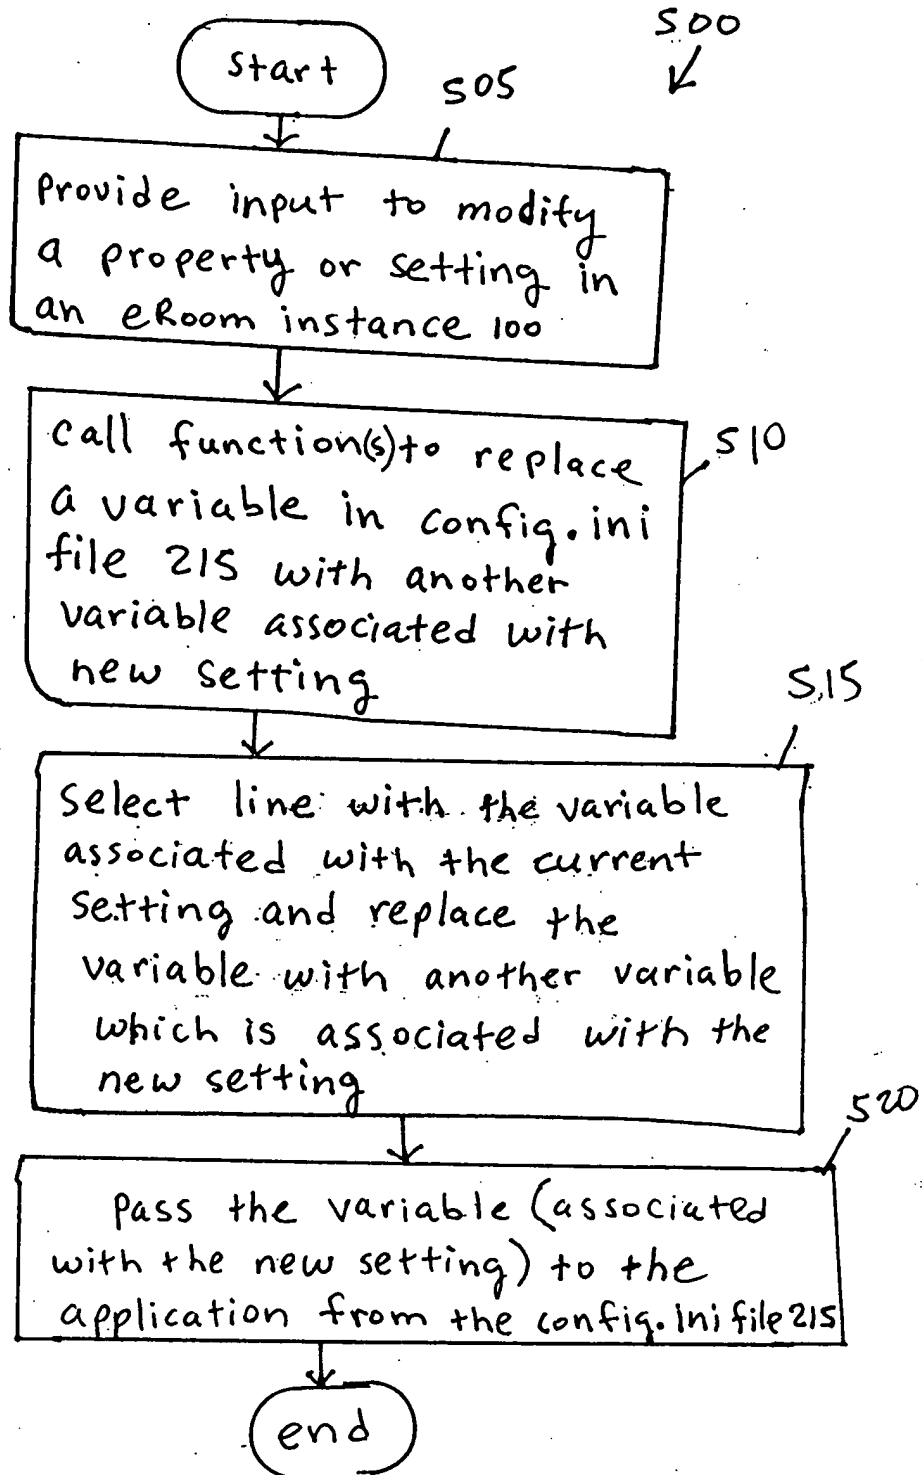 500
start
505
Provide input to modify
a property or setting in
an eRoom instance 100
call function(s) to replace
a variable in config.ini
file 215 with another
variable associated with
new setting
510
515
Select line with the variable
associated with the current
setting and replace the
variable with another variable
which is associated with the
new setting
520
Pass the variable (associated
with the new setting) to the
application from the config.ini file 215
end